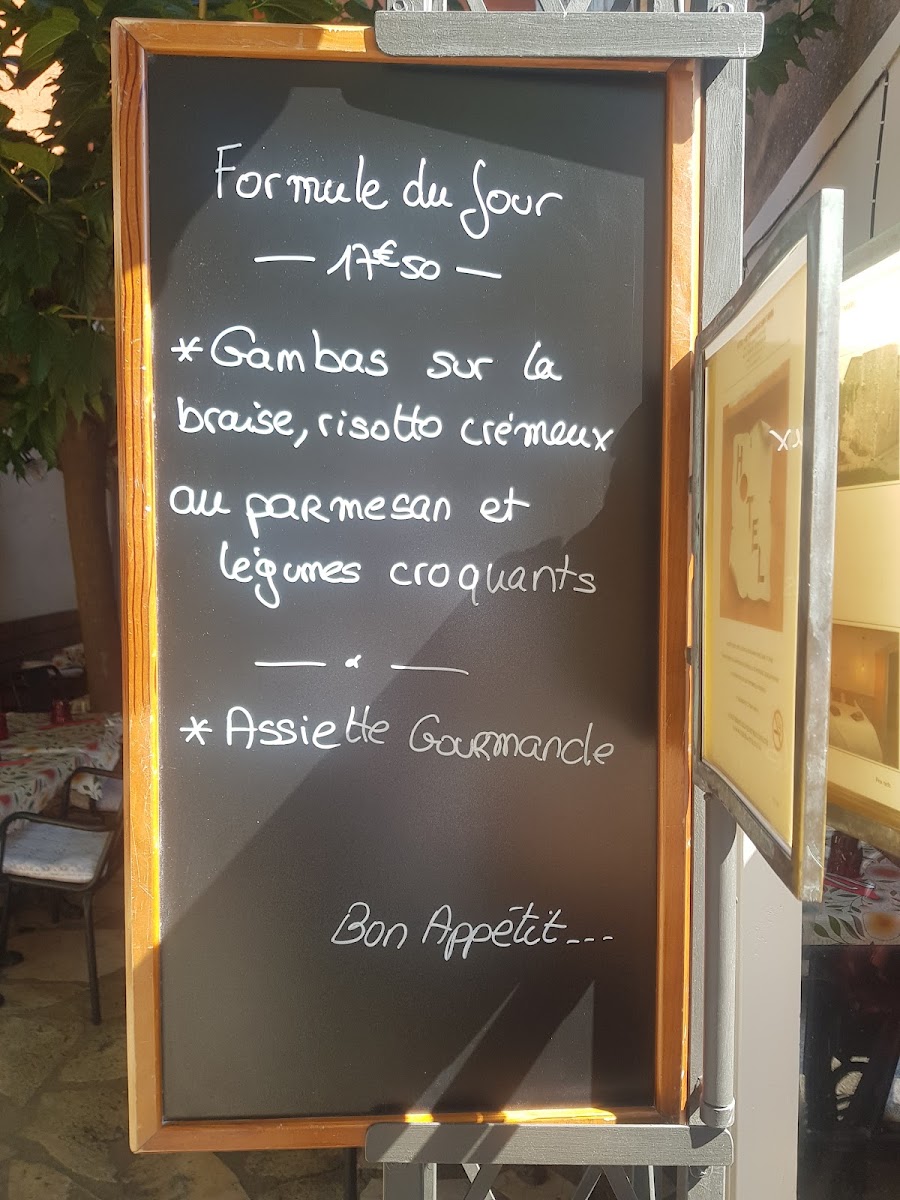 Formule du Jour
— 17€50 —
* Gambas sur la
braise, risotto crémeux
au parmesan et
légumes croquants
* Assiette Gourmande
Bon Appétit---
HOTEL